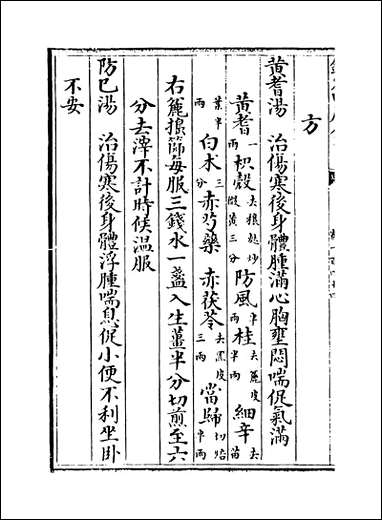 方
黄耆湯 治傷寒後身體腫滿心胸壅悶喘促氣滿
黄耆一兩 枳殼去穰麩炒微黄三分 防風半兩 桂去麤皮半兩 細辛去苗
葉半兩 白朮三分 赤芍藥 赤茯苓去黑皮三兩 當歸切焙半兩
右麤擣篩每服三錢水一盞入生薑半分切煎至六
分去滓不計時候温服
防已湯 治傷寒後身體浮腫喘息促小便不利坐卧
不安